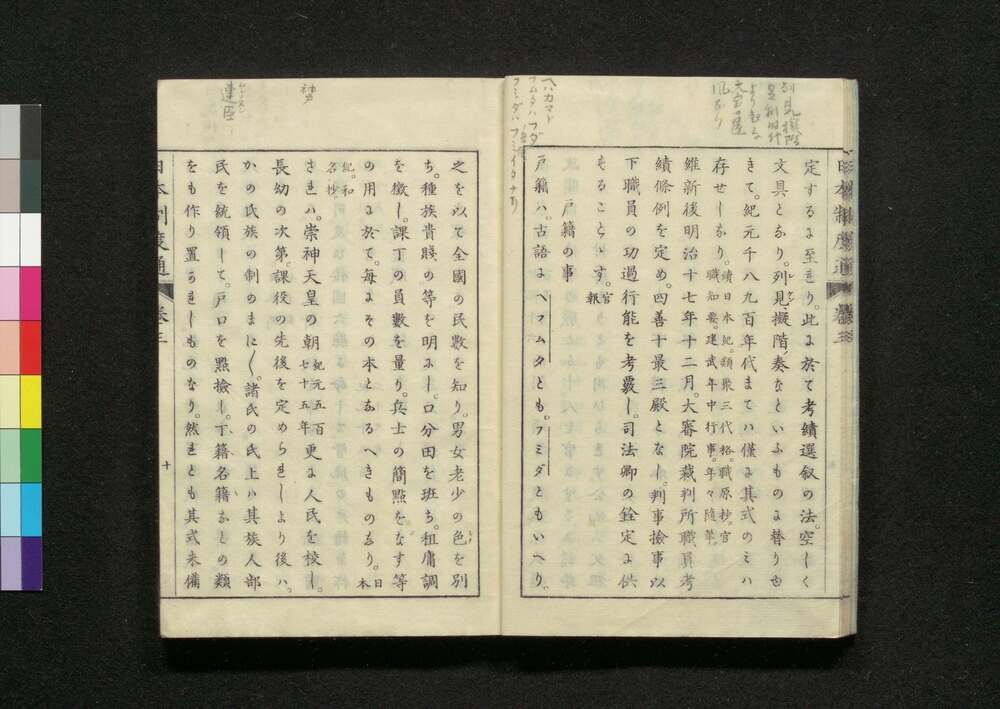 定するに至れり。此に於て考績選叙の法。空しく
文具となり。列見、擬階、奏などいふものに替りも
きて。紀元千八九百年代まてハ僅に其式のミハ
存せしなり。續日本紀。類聚三代格。職原抄。官
職知要。建武年中行事。年々隨筆。
維新後明治十七年十二月。大審院裁判所職員考
績條例を定め。四善十最三殿となし。判事撿事以
下職員の功過行能を考覈し。司法卿の銓定に供
することゝす。官報
戸籍の事
戸籍ハ。古語にヘフムタとも。フミダともいへり。
之を以て全國の民數を知り。男女老少の色を別
ち。種族貴賤の等を明にし。口分田を班ち。租庸調
を徴し。課丁の員數を量り。兵士の簡點をなす等
の用に於て。毎にその本となるへきものなり。日本
紀。和名抄。
されハ。崇神天皇の朝紀元五百七十五年更に人民を校し。
長幼の次第。課役の先後を定めらましより後ハ。
かの氏族の制のまに〱。諸氏の氏上ハ其族人部
民を統領して。戸口を點撿し。丁籍名籍などの類
をも作り置るましものなり。然れとも其式未備
日本制度通
卷三
十
連臣
ヘハカマド